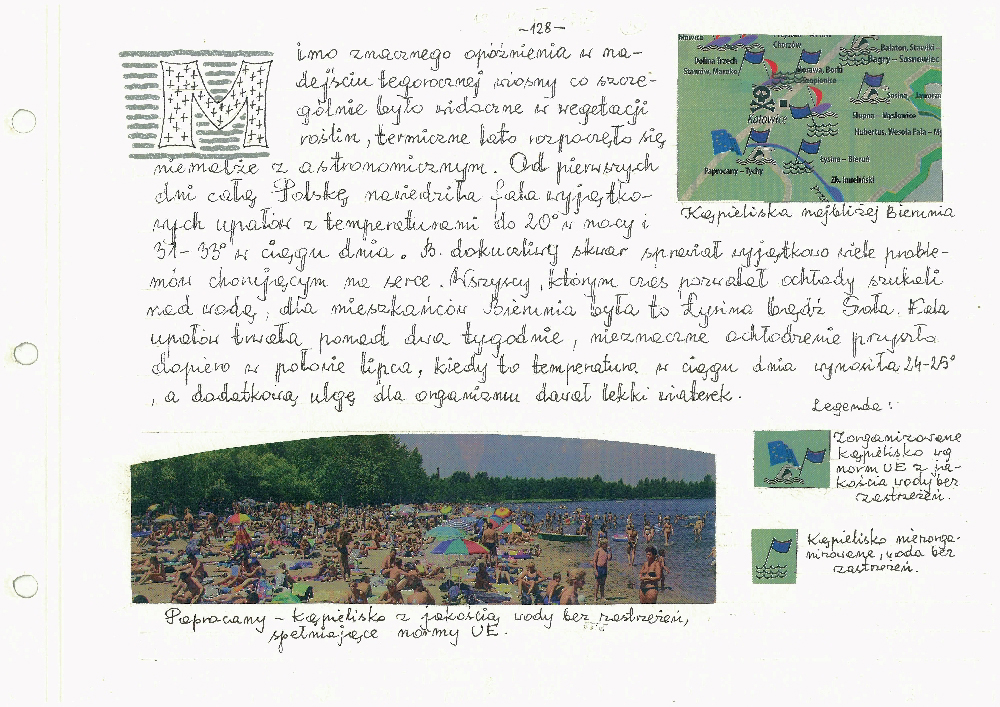 -128-
Mimo znacznego opóźnienia w na-
dejściu tegorocznej wiosny co szcze-
gólnie było widoczne w wegetacji
roślin, termiczne lato rozpoczęło się
niemalże z astronomicznym. Od pierwszych
dni całą Polskę nawiedziła fala wyjątko-
wych upałów z temperaturami do 20° w nocy i
31-33° w ciągu dnia. B. dokuczliwy skwar sprawiał wyjątkowo wiele proble-
mów chorującym na serce. Wszyscy, którym czas pozwalał ochłody szukali
nad wodą, dla mieszkańców Bierunia była to Łysina bądź Soła. Fala
upałów trwała ponad dwa tygodnie, nieznaczne ochłodzenie przyszło
dopiero w połowie lipca, kiedy to temperatura w ciągu dnia wynosiła 24-25°
, a dodatkową ulgę dla organizmu dawał lekki wiaterek.
Chorzów
Dolina Trzech
Stawów, Maroko
Morawa, Borki
Szopienice
Balaton, Stawiki -
Bagry - Sosnowiec
Sosina - Jaworzn
Katowice
Słupna - Mysłowice
Hubertus, Wesoła Fala - M
Paprocany - Tychy
Łysina - Bieruń
Zb. Imieliński
Kąpieliska najbliżej Bierunia
Legenda:
Zorganizowane
kąpielisko wg
norm UE z ja-
kością wody bez
zastrzeżeń.
Kąpielisko niezorga-
nizowane, woda bez
zastrzeżeń.
Paprocany - Kąpielisko z jakością wody bez zastrzeżeń,
spełniające normy UE.